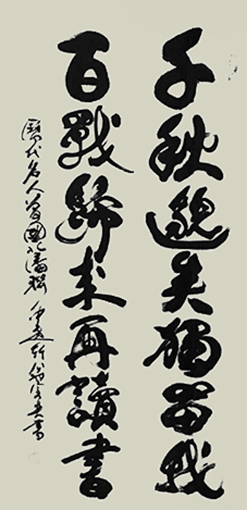 千秋邈矣獨留我
百戰歸來再讀書
歷代名人曾國藩聯